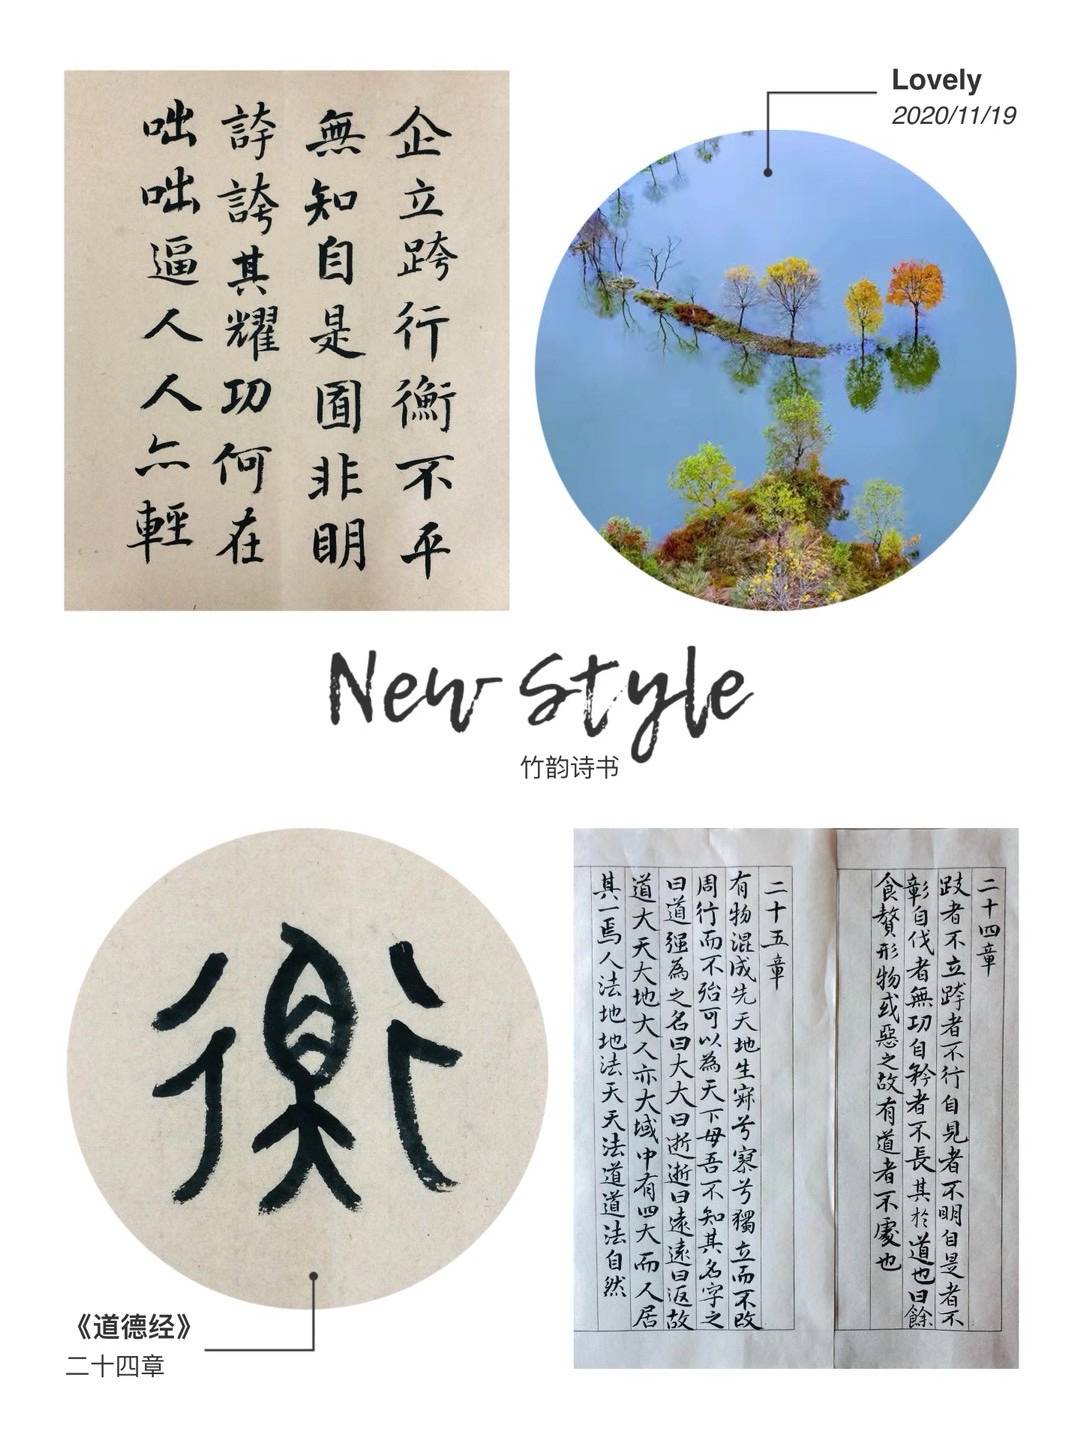 企立跨行衡不平
無知自是囿非明
誇誇其耀功何在
咄咄逼人人亦輕
Lovely
2020/11/19
New Style
竹韵诗书
衡
《道德经》
二十四章
二十四章
跂者不立跨者不行自見者不明自是者不
彰自伐者無功自矜者不長其於道也曰餘
食贅形物或惡之故有道者不處也
二十五章
有物混成先天地生寂兮寥兮獨立而不改
周行而不殆可以為天下母吾不知其名字之
曰道强為之名曰大大曰逝逝曰遠遠曰返故
道大天大地大人亦大域中有四大而人居
其一焉人法地地法天天法道道法自然